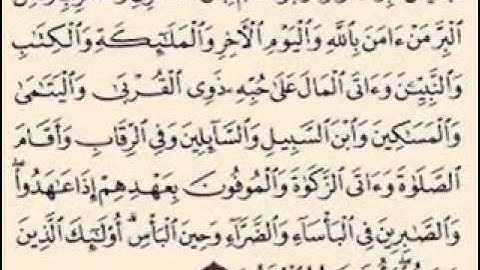 ٱلۡبِرَّ مَنۡ ءَامَنَ بِٱللَّهِ وَٱلۡيَوۡمِ ٱلۡأٓخِرِ وَٱلۡمَلَٰٓئِكَةِ وَٱلۡكِتَٰبِ
وَٱلنَّبِيِّـۧنَ وَءَاتَى ٱلۡمَالَ عَلَىٰ حُبِّهِۦ ذَوِي ٱلۡقُرۡبَىٰ وَٱلۡيَتَٰمَىٰ
وَٱلۡمَسَٰكِينَ وَٱبۡنَ ٱلسَّبِيلِ وَٱلسَّآئِلِينَ وَفِي ٱلرِّقَابِ وَأَقَامَ
ٱلصَّلَوٰةَ وَءَاتَى ٱلزَّكَوٰةَ وَٱلۡمُوفُونَ بِعَهۡدِهِمۡ إِذَا عَٰهَدُواْۖ
وَٱلصَّٰبِرِينَ فِي ٱلۡبَأۡسَآءِ وَٱلضَّرَّآءِ وَحِينَ ٱلۡبَأۡسِۗ أُوْلَٰٓئِكَ ٱلَّذِينَ